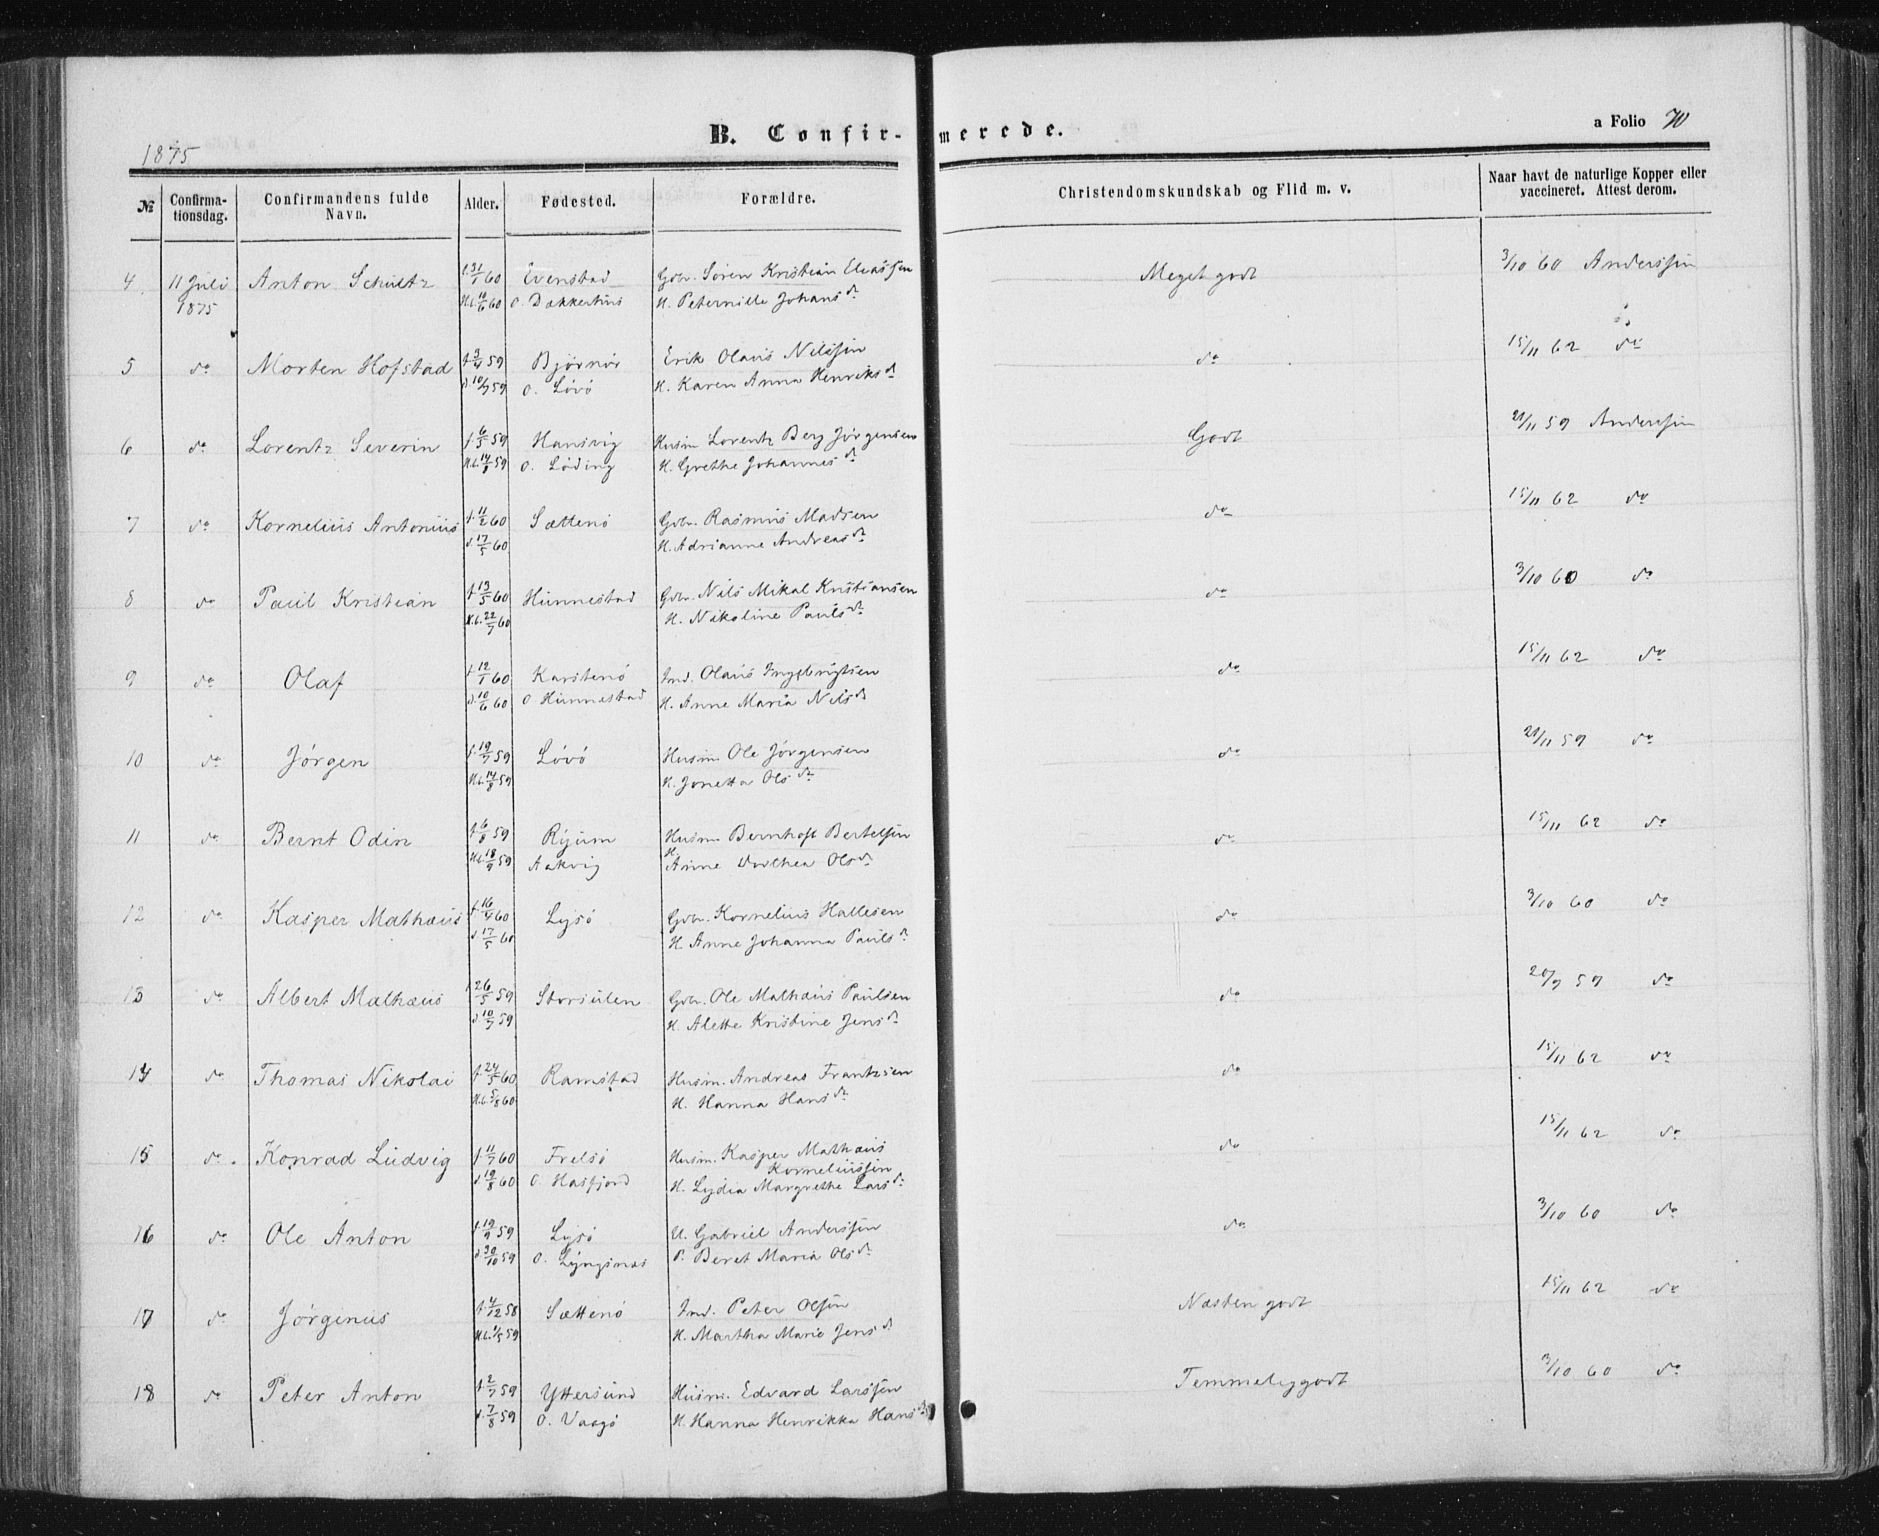 B. Confir-merede.
a Folio 70
1875
№ Confirma-tionsdag. Confirmandens fulde Navn. Alder. Fødested. Forældre. Christendomskundskab og Flid m. v. Naar havt de naturlige Kopper eller vaccineret. Attest derom.
4 11 Juli Anton Schultz f. 31/1 60 Evenstad Gdbr. Sören Kristian Eliassen Meget godt 3/10 60 Anderssen
1875 H.d. 60 O. H. Peternille Johans dr
5 do Morten Hofstad f. 3/4 59 Bjørnør Erik Olaus Nilssen do 15/11 62 do
d 10/7 59 O. Lövö H. Karen Anna Henriks dr
6 do Lorentz Severin f. 6/5 59 Hansvig Husm Lorentz Berg Jörgensen Godt 21/11 59 Anderssen
H.d. 14/8 59 O. Löding H. Grethe Johannes dr
7 do Kornelius Antonius f. 11/2 60 Sættenö Gdbr. Rasmus Madsen do 15/11 62 do
d. 17/5 60 H. Adrianne Andreas dr
8 do Paul Kristian f. 13/5 60 Hunnestad Gdbr. Nils Mikal Kristiansen do 3/10 60 do
H.d. 22/7 60 H. Nikoline Pauls dr
9 do Olaf f. 12/1 60 Karstenö Ind. Olaus Ingebrigtsen do 15/11 62 do
d. 10/6 60 O Hunnestad H. Anne Maria Nils dr
10 do Jörgen f. 19/7 59 Lövö Husm. Ole Jörgensen do 21/11 59 do
H.d. 14/8 59 H. Jonetta Ols dr
11 do Bernt Odin f. 6/8 59 Ryum Husm. Bernhoft Bertelsen do 15/11 62 do
H.d. 18/9 59 Aakvig H. Anne Dorthea Ols dr
12 do Kasper Mathæus f. 16/4 60 Lysö Gdbr. Kornelius Hallesen do 3/10 60 do
d 17/5 60 H Anne Johanna Pauls dr
13 do Albert Mathæus f 26/5 59 Storsulen Gdbr. Ole Mathæus Paulsen do 20/9 59 do
d 10/7 59 H. Alette Kristine Jens dr
14 do Thomas Nikolai f. 24/5 60 Ramstad Husm. Andreas Frantzsen do 15/11 62 do
H.d. 5/8 60 H. Hanna Hans dr
15 do Konrad Ludvig f. 11/7 60 Frelsö Husm. Kasper Mathæus do 15/11 62 do
Korneliussen
d 19/8 60 O. Hasfjord H. Lydia Margrethe Lars dr
16 do Ole Anton f. 19/9 59 Lysö U. Gabriel Anderssen do 3/10 60 do
d 30/10 59 O. Lyngsnæs P. Beret Maria Ols dr
17 do Jörginus f. 4/12 58 Sættenö Ind. Peter Olsen Næsten godt 15/11 62 do
H.d. 1/5 59 H. Martha Marie Jens dr
18 do Peter Anton f. 2/7 59 Yttersund Husm. Edvard Larssen Temmelig godt 3/10 60 do
d. 7/8 59 O. Vaagö H. Hanna Henrikka Hans dr